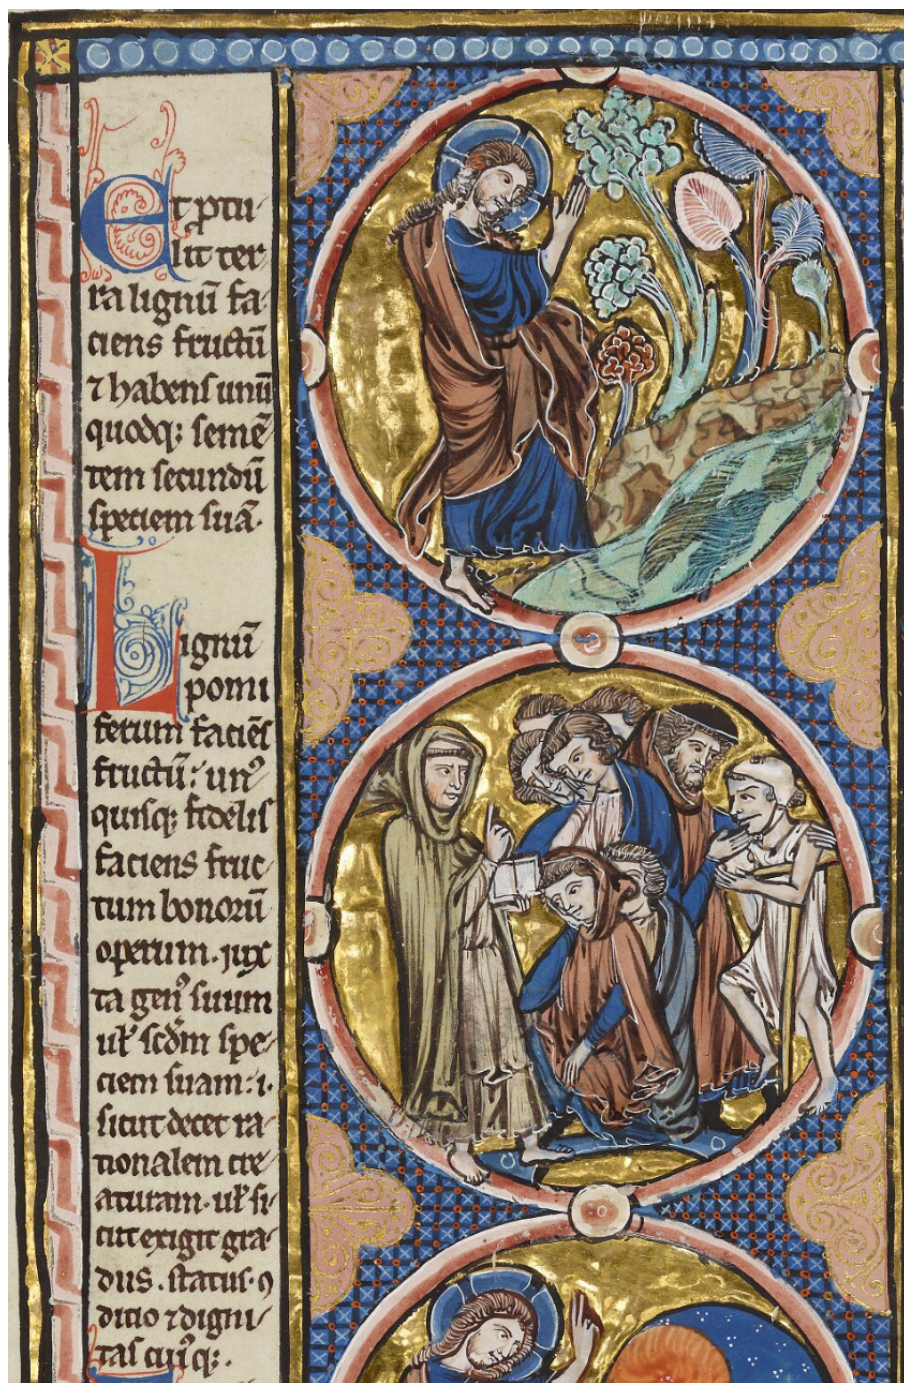 Et ꝓtu/
lit ter/
ra lignū fa/
ciens fructū
⁊ habens unū
quodq; semē/
tem secundū
speciem suā.
Lignū
pomi
ferum faciēs
fructū: unꝰ
quisq; fidelis
faciens fruc
tum bonorū
operum. iux
ta genꝰ suum
ul̓ scd̓m spe/
ciem suam: .i.
sicut decet ra/
tionalem cre
aturam. ul̓ si/
cut exigit gra/
dus. status. ꝯ
ditio ⁊ digni/
tas cuiꝰq;.